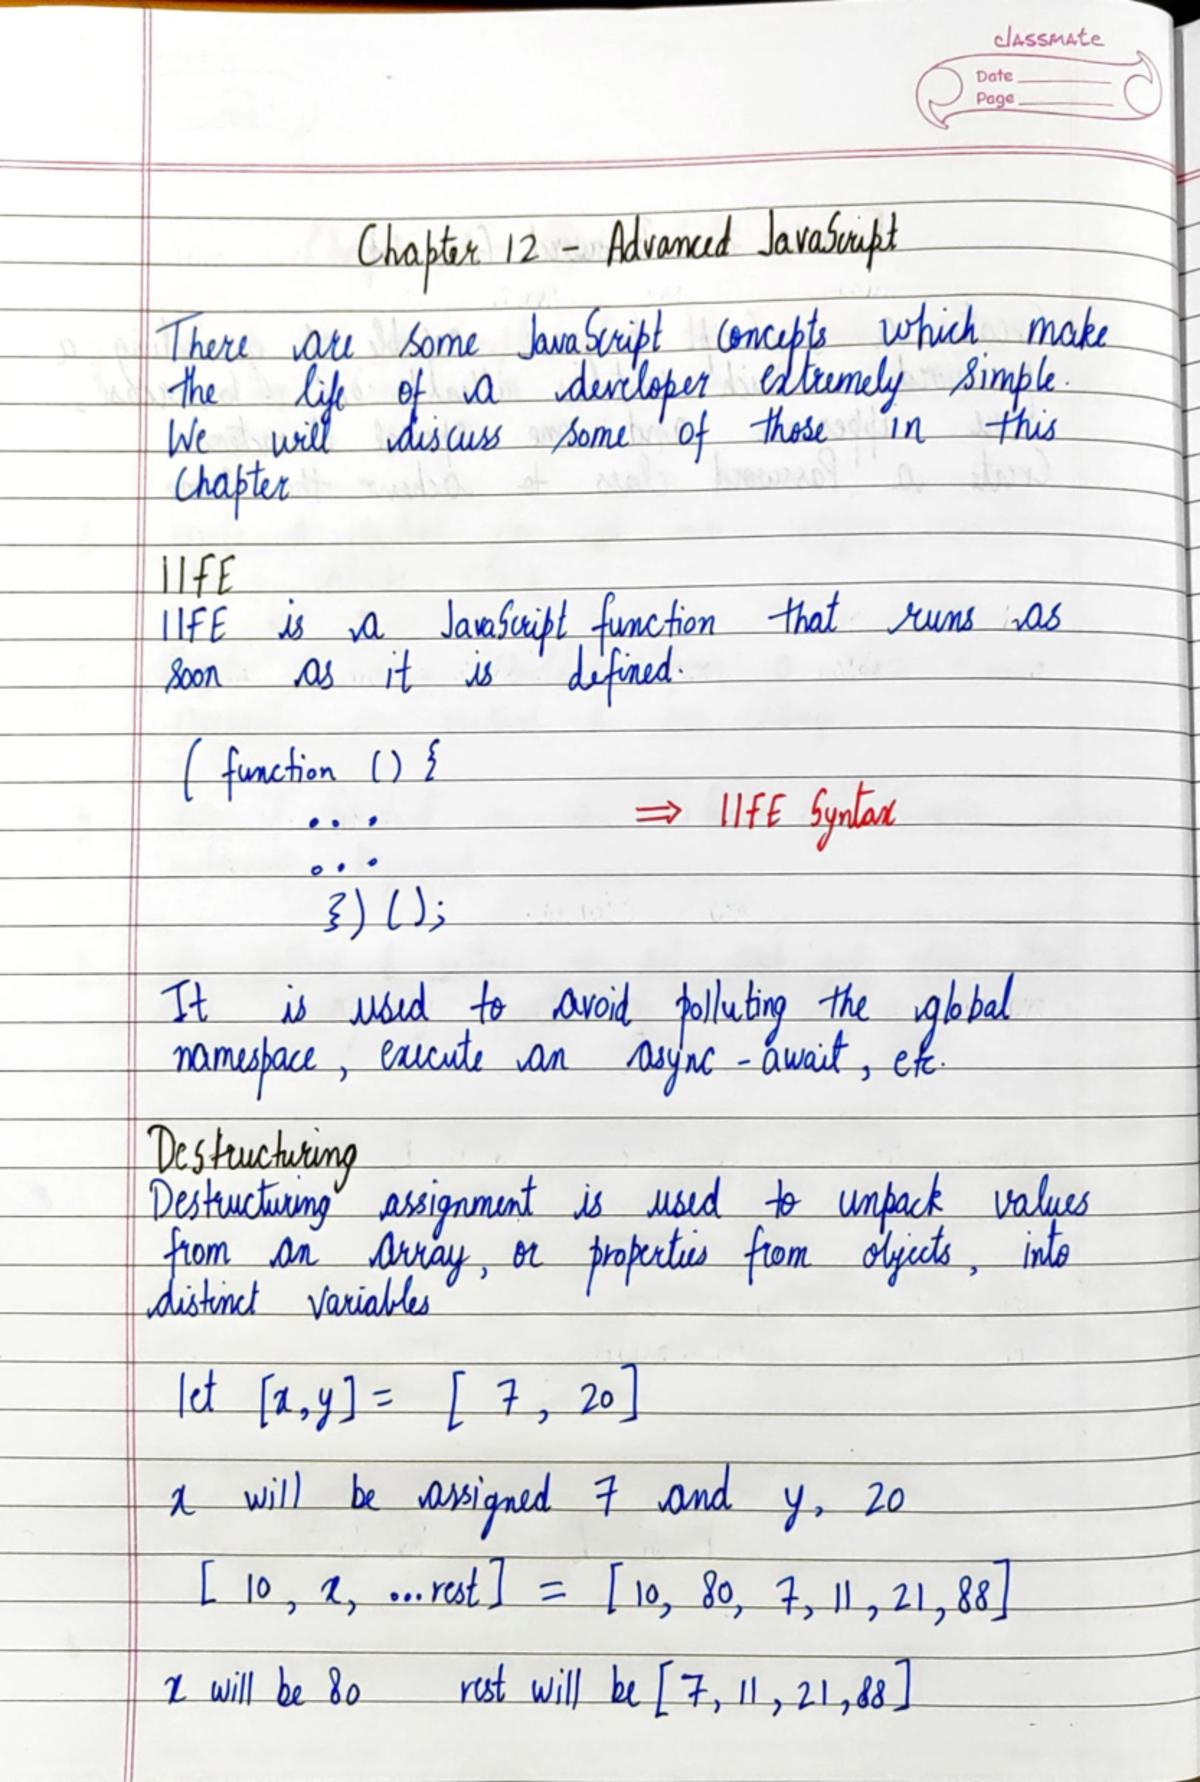 classmate
Date
Page
Chapter 12 - Advanced JavaScript
There are some JavaScript concepts which make
the life of a developer extremely simple.
We will discuss some of those in this
Chapter
IIFE
IIFE is a JavaScript function that runs as
soon as it is defined.
( function () {
...
⇒ IIFE Syntax
...
}) ();
It is used to avoid polluting the global
namespace, execute an async - await, etc.
Destructuring
Destructuring assignment is used to unpack values
from an array, or properties from objects, into
distinct variables
let [x,y] = [ 7 , 20 ]
x will be assigned 7 and y, 20
[ 10 , x, ...rest ] = [10, 80, 7, 11, 21, 88]
x will be 80 rest will be [7, 11, 21, 88]